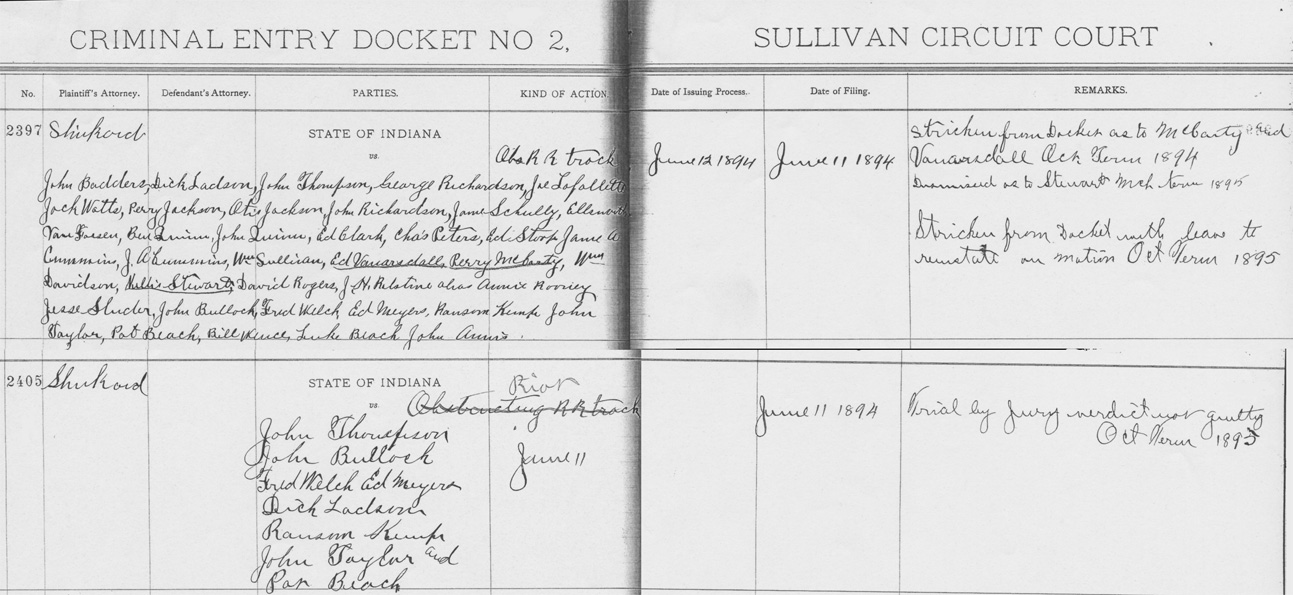 CRIMINAL ENTRY DOCKET NO 2,
SULLIVAN CIRCUIT COURT
No. Plaintiff's Attorney. Defendant's Attorney. PARTIES. KIND OF ACTION. Date of Issuing Process. Date of Filing. REMARKS.
2397
STATE OF INDIANA
vs.
Obs R R track
June 12 1894
June 11 1894
Stricken from Docket as to McCarty and
Vanarsdall Oct Term 1894
Dismissed as to Stewart Mch term 1895
Stricken from Docket with leave to
reinstate on motion Oct Term 1895
John Badders, Dick Ladson, John Thompson, George Richardson, Joe Lafollette
Jack Watts, Perry Jackson, Otis Jackson, John Richardson, Jame Schully, Ellsworth
Van Fossen, Ben Quinn, John Quinn, Ed Clark, Chas Peters, Ed Stoop Jame A
Cummins, J. A Cummins, Wm Sullivan, Ed Vanarsdall, Perry McCarty, Wm
Davidson, Stewart, David Rogers, J. H. alias Annix Rooney
Jesse Studer, John Bullock, Fred Welch Ed Meyers, Ransom Kemp John
Taylor, Pat Beach, Bill Luke Beach John Annis.
2405
STATE OF INDIANA
vs.
Riot
Obstructing R R track
June 11
June 11 1894
Trial by Jury verdict not guilty
Oct Term 1895
John Thompson
John Bullock
Fred Welch Ed Meyers
Dick Ladson
Ransom Kemp
John Taylor and
Pat Beach